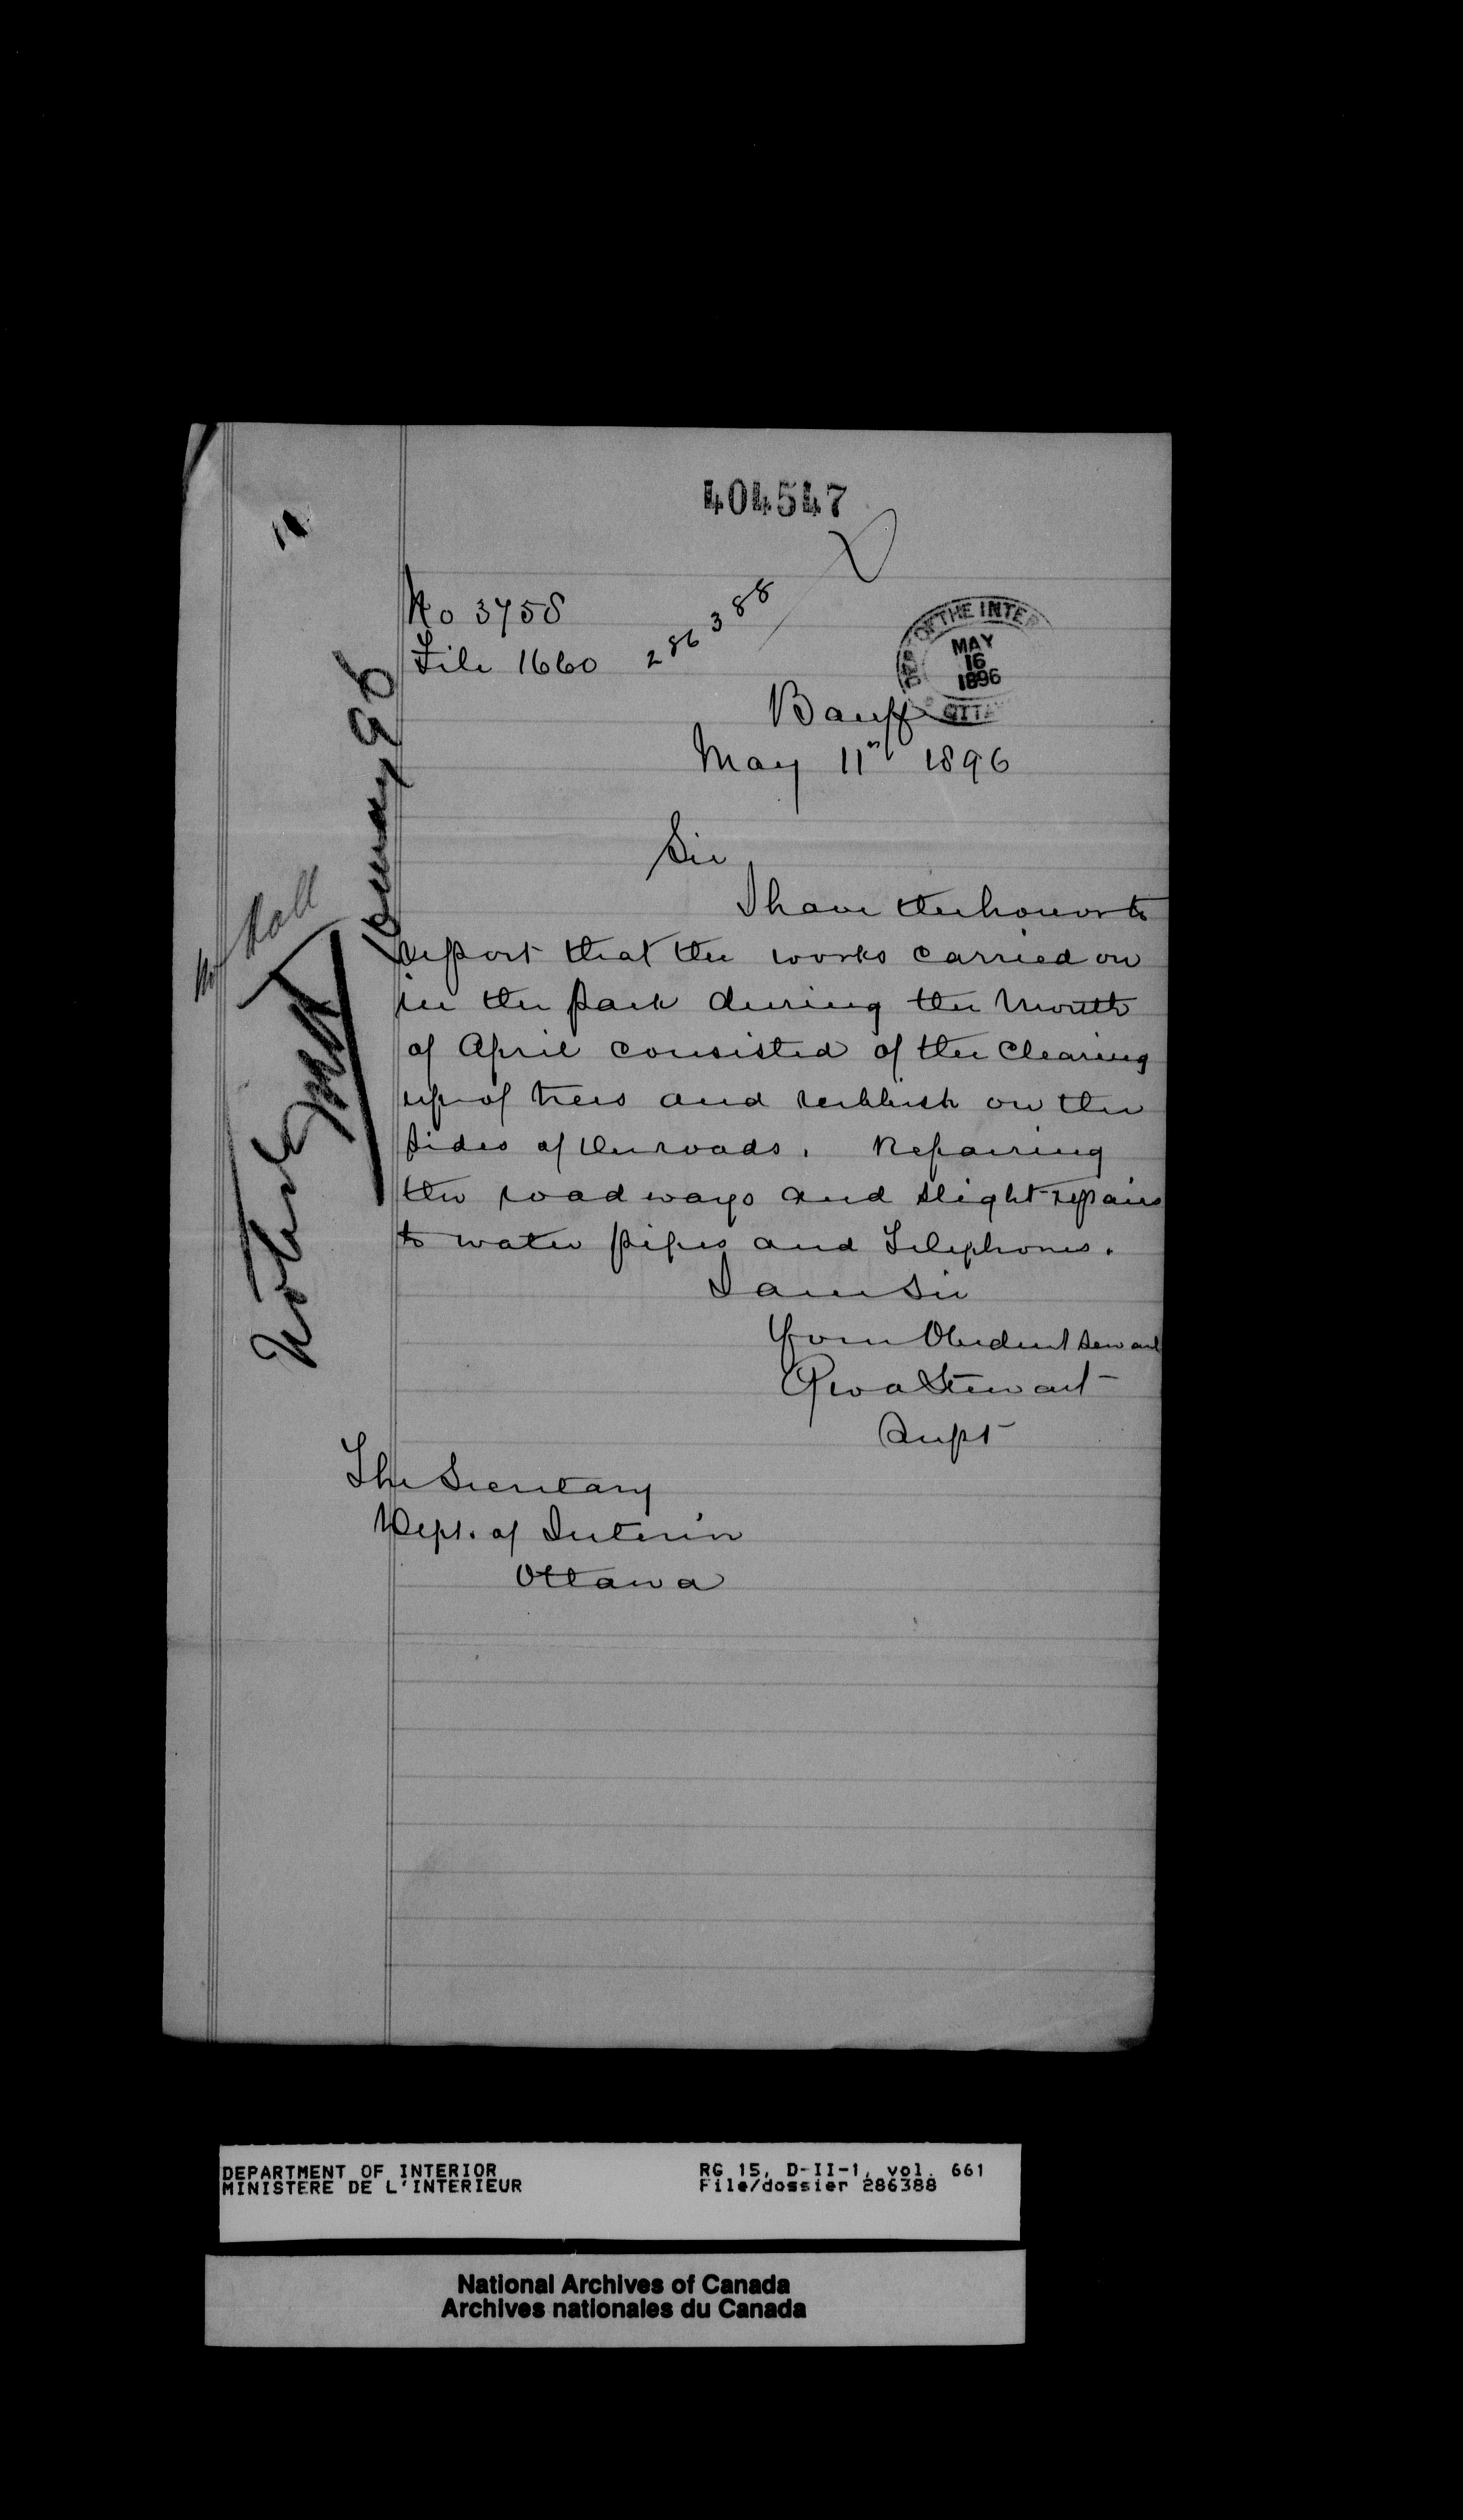 404547
No 3758
File 1660
286388
DEPT OF THE INTER
MAY
16
1896
OTTA
Banff
May 11th 1896
Sir
I have the honor to
report that the works carried on
in the park during the month
of April consisted of the clearing
up of trees and rubbish on the
sides of the roads. Repairing
the roadways and slight repairs
to water pipes and Telephones.
I am Sir
Your Obedient Servant
Geo A Stewart
Supt
The Secretary
Dept. of Interior
Ottawa
Mr Hall
Noted
May 96
DEPARTMENT OF INTERIOR
MINISTERE DE L'INTERIEUR
RG 15, D-II-1, vol. 661
File/dossier 286388
National Archives of Canada
Archives nationales du Canada